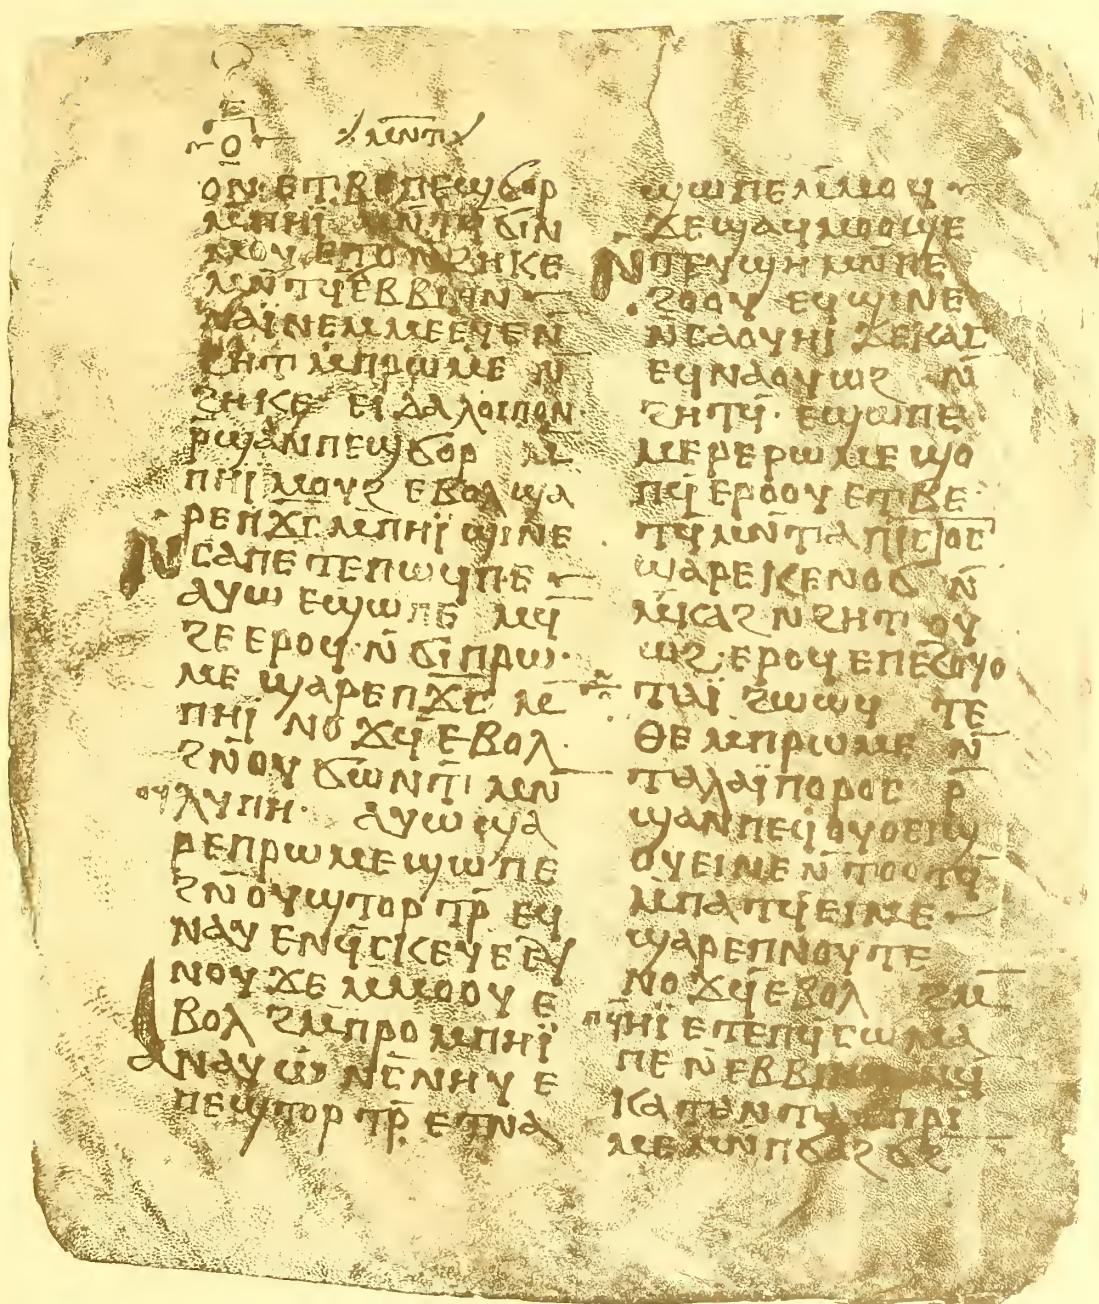 ⲟ̅
ⲙⲛ̅ⲧ
ⲟⲛ· ⲉⲧⲃⲉⲡⲉϣϭⲟⲣ
ⲙⲡⲏⲓ ⲙⲛ̅ⲧϥϭⲓⲛ
ⲙⲟⲩ
ⲙⲛ̅ⲧϥⲉⲃⲃⲓⲏⲛ
ⲛⲁⲓ̈ⲛⲉⲙⲙⲉⲉⲩⲉⲛ̅
ϩⲏⲧ ⲙⲡⲣⲱⲙⲉ ⲛ̅
ϩⲏⲕⲉ ⲉⲓⲇⲁ ⲗⲟⲓⲡⲟⲛ·
ⲣϣⲁⲛⲡⲉϣϭⲟⲣ ⲙ̅
ⲡⲏⲓ ⲙⲟⲩϩ ⲉⲃⲟⲗ ϣⲁ
ⲣⲉⲡϫⲥ̅ ⲙⲡⲏⲓ̈ ϣⲓⲛⲉ
ⲛⲥⲁⲡⲉⲧⲉⲡⲱϥⲡⲉ
ⲁⲩⲱ ⲉϣⲱⲡⲉ ⲙϥ̅
ϩⲉ ⲉⲣⲟϥ· ⲛ̅ϭⲓⲡⲣⲱ·
ⲙⲉ ϣⲁⲣⲉⲡϫⲥ̅ ⲙ̅
ⲡⲏⲓ ⲛⲟϫϥ̅ ⲉⲃⲟⲗ·
ϩⲛ̅ⲟⲩ ϭⲱⲛⲧ̅ ⲙⲛ
ⲟⲩⲗⲩⲡⲏ· ⲁⲩⲱ ϣⲁ
ⲣⲉⲡⲣⲱⲙⲉ ϣⲱⲡⲉ
ϩⲛ̅ⲟⲩϣⲧⲟⲣⲧⲣ̅ ⲉϥ
ⲛⲁⲩ ⲉⲛϥ̅ⲥⲕⲉⲩⲉ ⲉⲩ
ⲛⲟⲩϫⲉ ⲙⲙⲟⲟⲩ ⲉ
ⲃⲟⲗ ϩⲙ̅ⲡⲣⲟ ⲙⲡⲏⲓ̈
ⲁⲛⲁⲩ ⲱ̅ ⲛⲥ̅ⲛⲏⲩ ⲉ
ⲡⲉϣⲧⲟⲣⲧⲣ̅ ⲉⲧⲛⲁ
ϣⲱⲡⲉ ⲙ̅ⲙⲟϥ
ϫⲉϣⲁϥⲙⲟⲟϣⲉ
ⲛⲧⲉⲩϣⲏ ⲙⲛ̅ⲡⲉ
ϩⲟⲟⲩ ⲉϥϣⲓⲛⲉ
ⲛⲥⲁⲟⲩⲏⲓ ϫⲉⲕⲁⲥ
ⲉϥⲛⲁⲟⲩⲱϩ ⲛ̅
ϩⲏⲧϥ̅· ⲉϣⲱⲡⲉ
ⲙⲉⲣⲉⲣⲱⲙⲉ ϣⲟ
ⲡϥ ⲉⲣⲟⲟⲩ ⲉⲧⲃⲉ·
ⲧϥ ⲙⲛ̅ⲧⲁⲡⲓⲥⲧⲟⲥ
ϣⲁⲣⲉⲓⲕⲉⲛⲟϭ ⲛ̅
ⲙ̅ⲕⲁϩ ⲛϩⲏⲧ ⲟⲩ
ⲱϩ· ⲉⲣⲟϥ ⲉⲡⲉϩⲟⲩⲟ
ⲧⲁⲓ̈ ϩⲱⲱϥ ⲧⲉ
ⲑⲉ ⲙⲡⲣⲱⲙⲉ ⲛ̅
ⲧⲁⲗⲁⲓ̈ⲡⲟⲣⲟⲥ ⲣ̅
ϣⲁⲛⲡⲉϥⲟⲩⲟⲉⲓϣ
ⲟⲩⲉⲓⲛⲉ ⲛ̅ⲧⲟⲟⲧϥ̅
ⲙⲡⲁⲧϥ̅ⲉⲓⲙⲉ
ϣⲁⲣⲉⲡⲛⲟⲩⲧⲉ
ⲛⲟϫϥ̅ⲉⲃⲟⲗ ϩⲙ̅
ⲡϥⲏⲓ ⲉⲧⲉⲡϥⲥⲱⲙⲁ
ⲡⲉ
ⲙⲉ ⲙⲛⲡϭⲁϩϭϩ